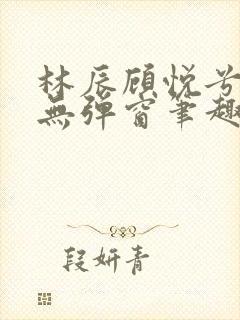 林辰顾悦兮
無弹窗筆趣
段妍青